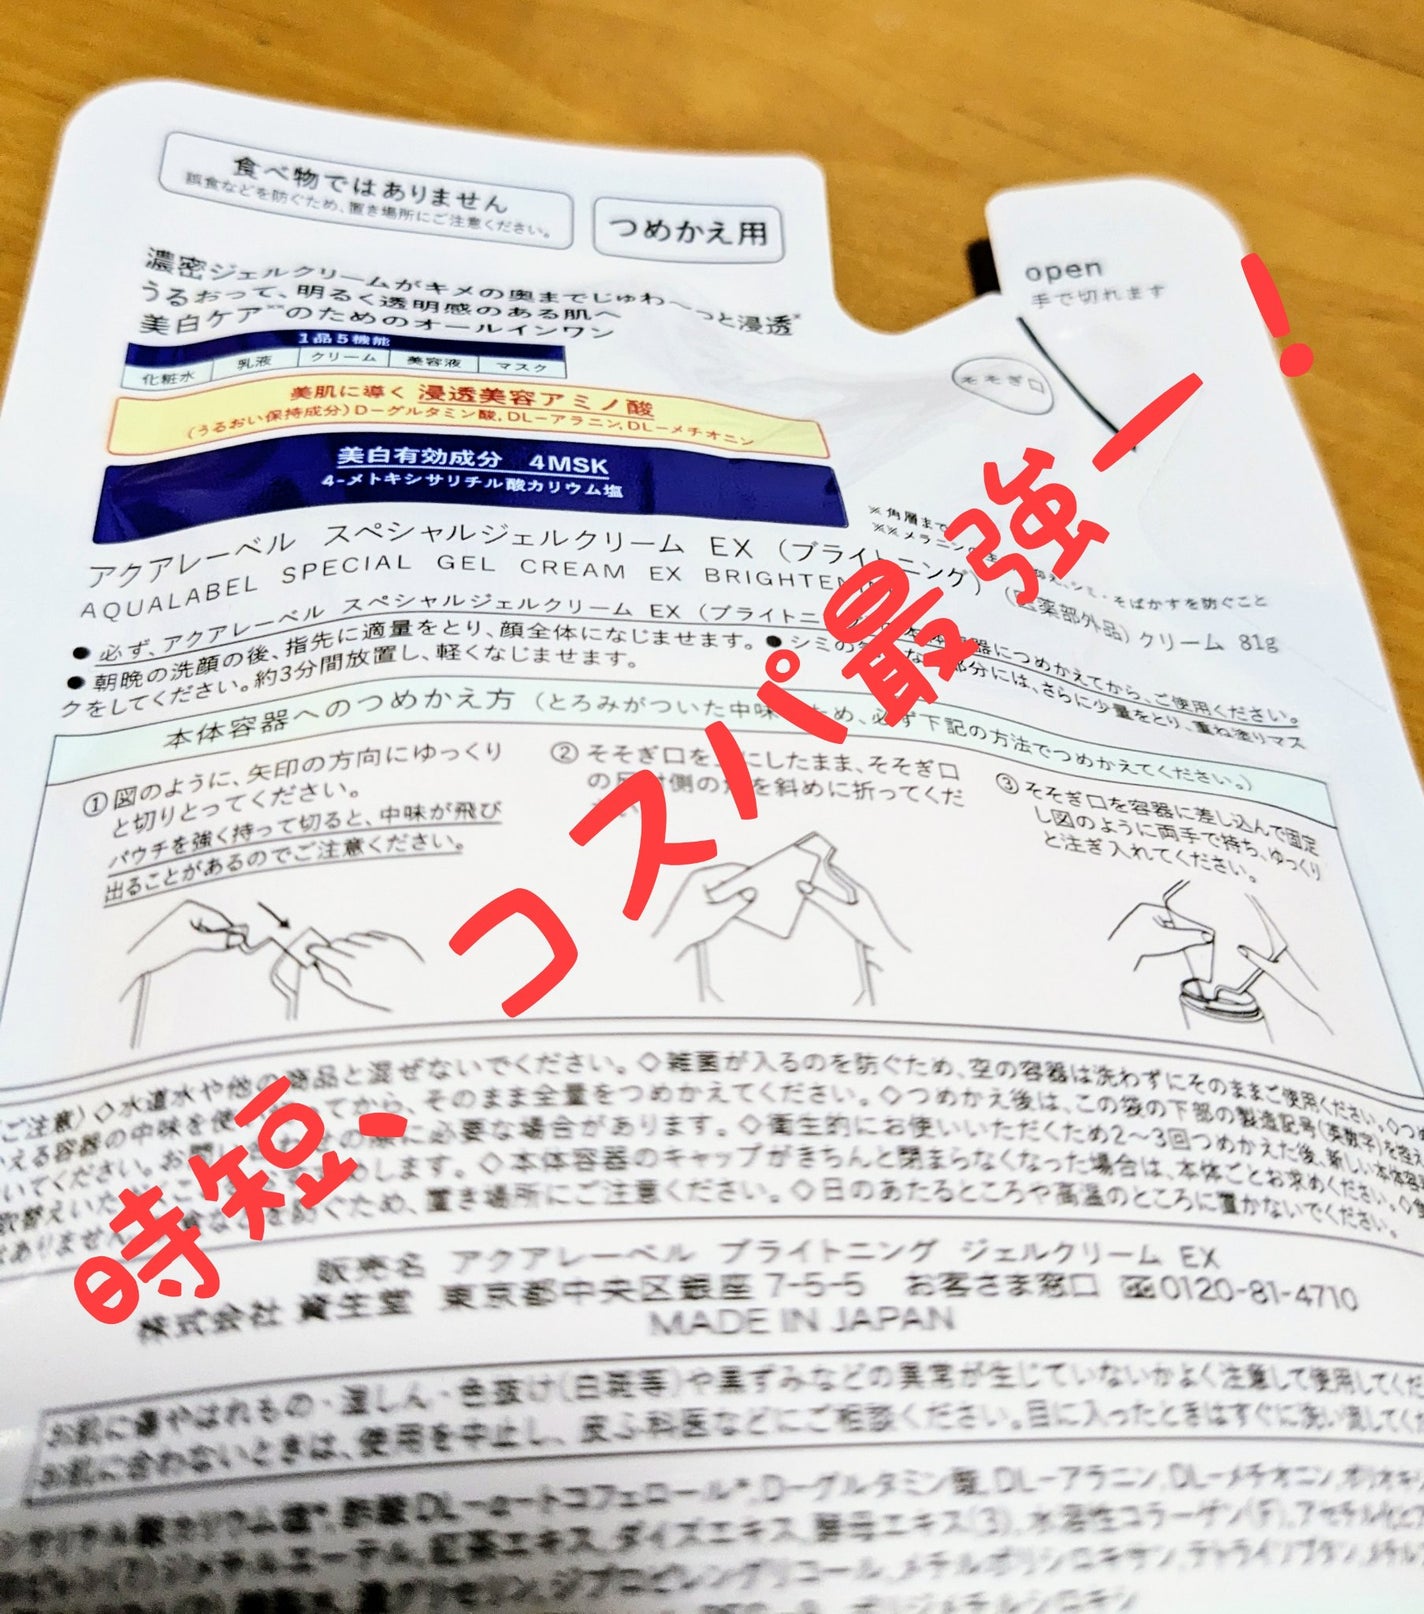 食べ物ではありません
誤食などを防ぐため、置き場所にご注意ください。
つめかえ用
open
手で切れます
そそぎ口
濃密ジェルクリームがキメの奥までじゅわ〜っと浸透*
うるおって、明るく透明感のある肌へ
美白ケア**のためのオールインワン
1品5機能
化粧水 乳液 クリーム 美容液 マスク
美肌に導く 浸透美容アミノ酸
(うるおい保持成分)D-グルタミン酸,DL-アラニン,DL-メチオニン
美白有効成分 4MSK
4-メトキシサリチル酸カリウム塩
※角層まで
※※メラニン シミ・そばかすを防ぐこと
アクアレーベル スペシャルジェルクリーム EX (ブライトニング) (医薬部外品) クリーム 81g
AQUALABEL SPECIAL GEL CREAM EX BRIGHTEN
●必ず、アクアレーベル スペシャルジェルクリーム EX (ブライトニ 本体容器につめかえてから、ご使用ください。
●朝晩の洗顔の後、指先に適量をとり、顔全体になじませます。●シミの 部分には、さらに少量をとり、重ね塗りマス
クをしてください。約3分間放置し、軽くなじませます。
本体容器へのつめかえ方 (とろみがついた中味 ため、必ず下記の方法でつめかえてください。)
①図のように、矢印の方向にゆっくり
と切りとってください。
パウチを強く持って切ると、中味が飛び
出ることがあるのでご注意ください。
②そそぎ口を にしたまま、そそぎ口
の反対側の を斜めに折ってくだ
③そそぎ口を容器に差し込んで固定
し図のように両手で持ち、ゆっくり
と注ぎ入れてください。
コスパ最強ー!
時短、
(ご注意)◇水道水や他の商品と混ぜないでください。◇雑菌が入るのを防ぐため、空の容器は洗わずにそのままご使用ください。◇つめ
える容器の中味を使 てから、そのまま全量をつめかえてください。◇つめかえ後は、この袋の下部の製造記号(英数字)を控え
いてください。お問い の際に必要な場合があります。◇衛生的にお使いいただくため2〜3回つめかえた後、新しい本体容器
取替えいた します。◇本体容器のキャップがきちんと閉まらなくなった場合は、本体ごとお求めください。◇食
ありません。 などを防ぐため、置き場所にご注意ください。◇日のあたるところや高温のところに置かないでください。
販売名 アクアレーベル ブライトニング ジェルクリーム EX
株式会社 資生堂 東京都中央区銀座 7-5-5 お客さま窓口 0120-81-4710
MADE IN JAPAN
お肌に傷やはれもの・湿しん・色抜け(白斑等)や黒ずみなどの異常が生じていないかよく注意して使用してくだ
お肌に合わないときは、使用を中止し、皮ふ科医などにご相談ください。目に入ったときはすぐに洗い流してく
サリチル酸カリウム塩*,酢酸DL-α-トコフェロール*,D-グルタミン酸,DL-アラニン,DL-メチオニン,
ジメチルエーテル,紅茶エキス,ダイズエキス,酵母エキス(3),水溶性コラーゲン(F),アセチル化ヒ
濃グリセリン,ジプロピレングリコール,メチルポリシロキサン